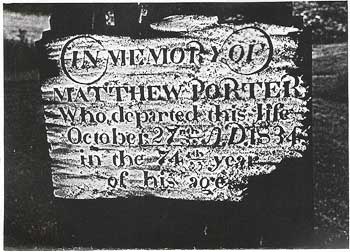 IN MEMORY OF
MATTHEW PORTER
Who departed this life
October 27th A.D. 1834
in the 74th year
of his age